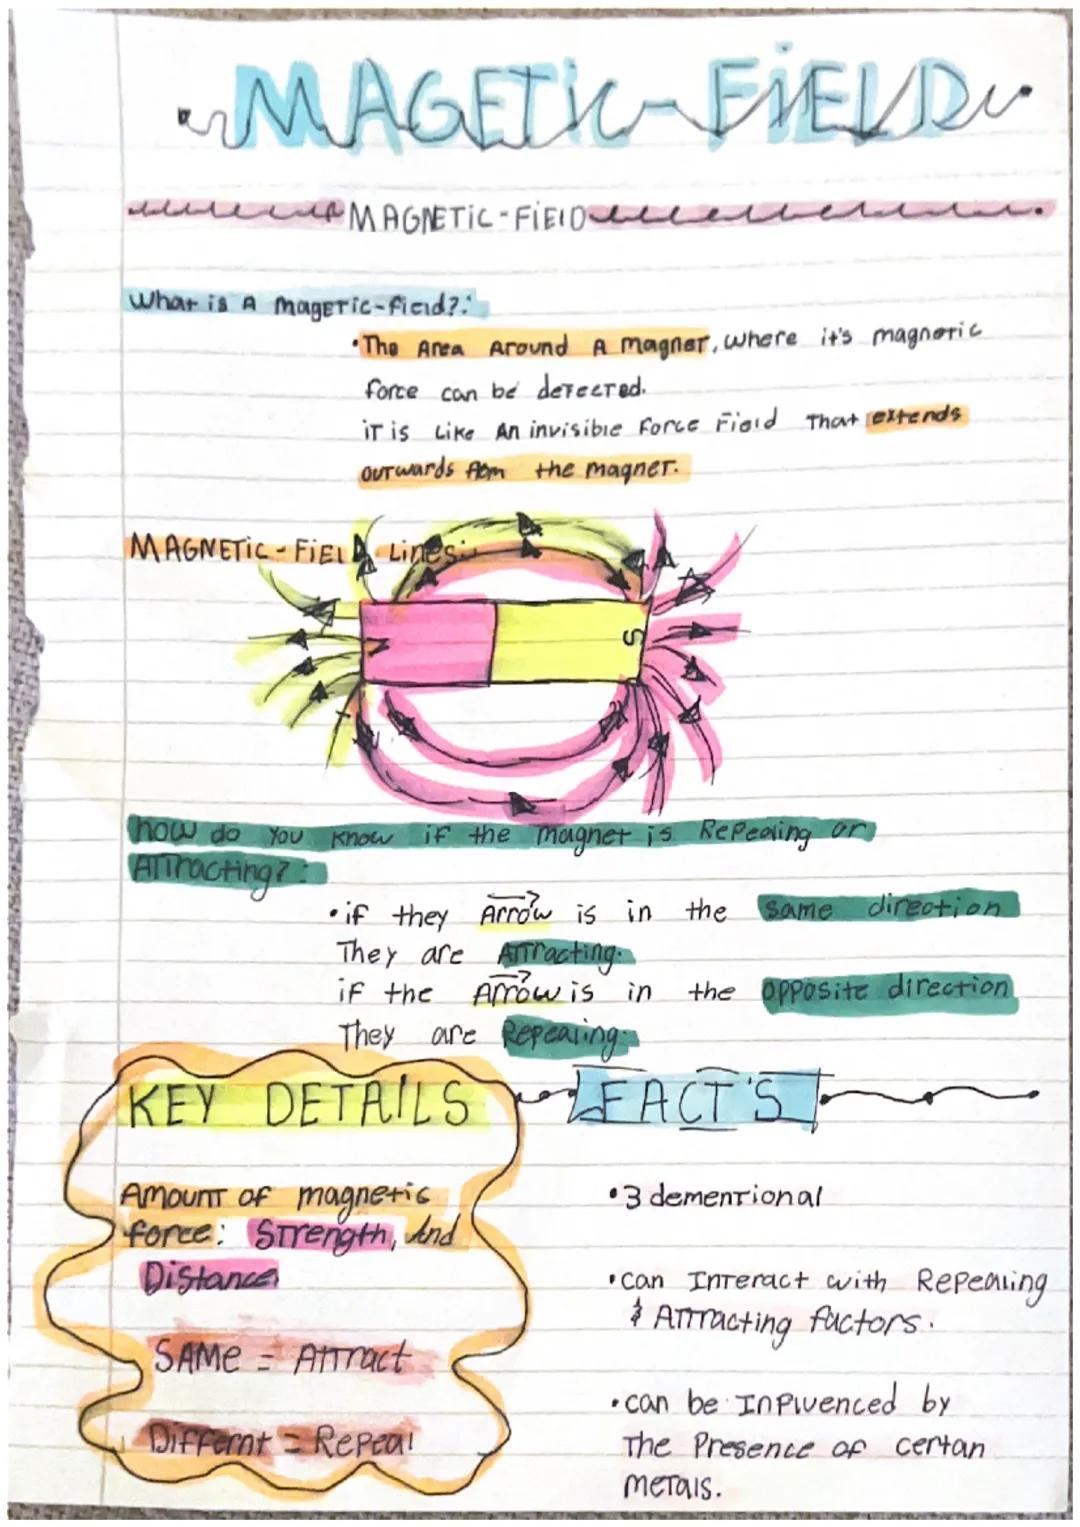 MAGETIC-FIELD
MAGNETIC-FIELD
What is A mageric-field?:
•The Area Around A magner, where it's magnetic
force can be derecred.
iT is Like An invisible force Field That extends
outwards from the magner.
MAGNETIC-FIELD Lines:
N S
how do you know if the magnet is Repealing or
ATTracting?:
•if they Arrow is in the same direction
They are ATTracting.
if the Arrow is in the opposite direction
They are Repealing.
KEY DETAILS
Amount of magnetic
force: STrength, And
Distance
SAMe = Attract
Differnt = Repeal
FACT'S
•3 dementional
•can InTeract with Repealing
& ATTracting factors.
•can be Influenced by
The Presence of certan
metals.